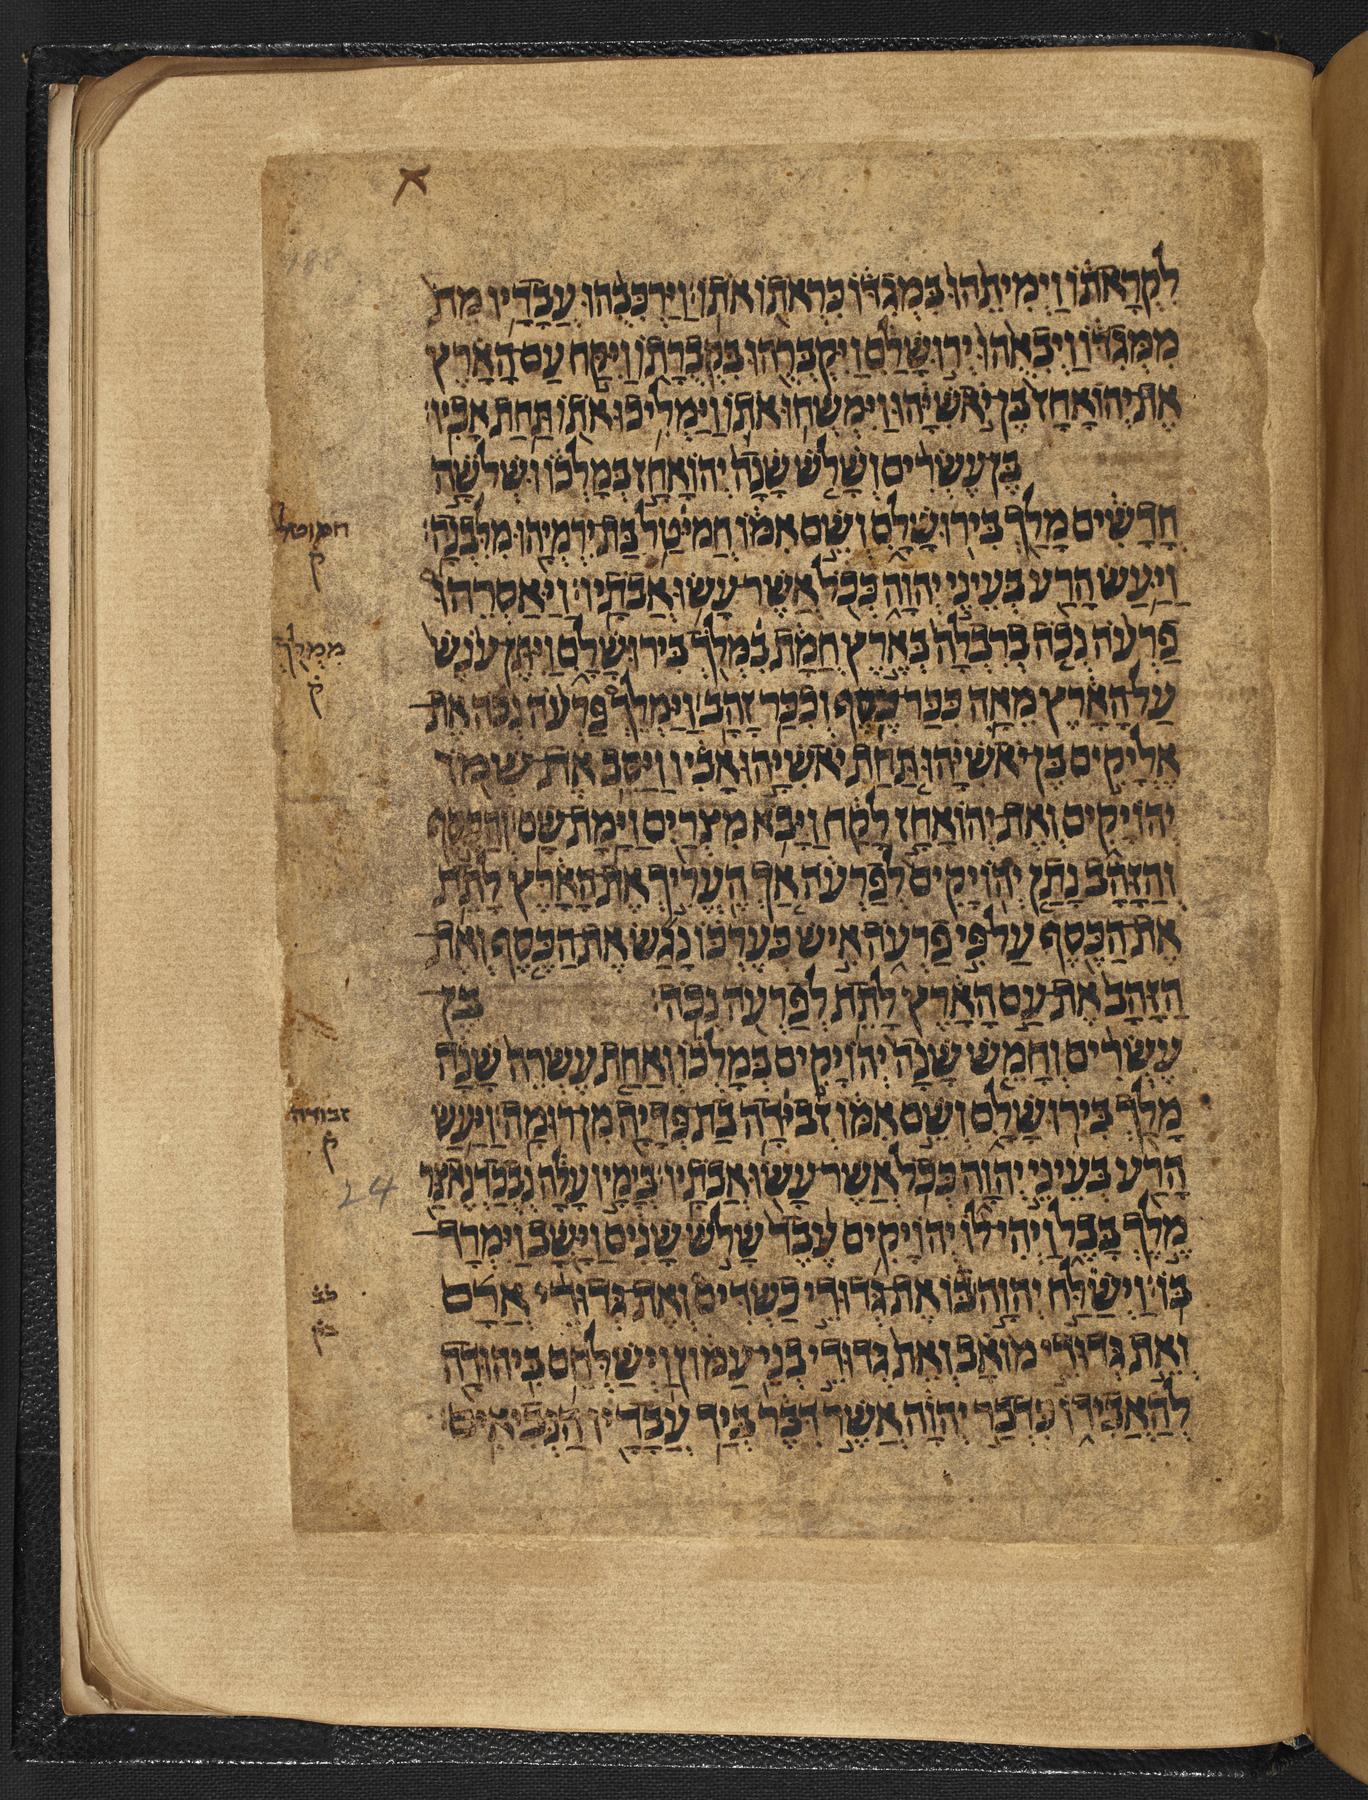 לִקְרָאתוֹ וַיְמִיתֵהוּ בִּמְגִדּוֹ כִּרְאֹתוֹ אֹתוֹ׃ וַיַּרְכִּבֻהוּ עֲבָדָיו מֵת
מִמְּגִדּוֹ וַיְבִאֻהוּ יְרוּשָׁלִַם וַיִּקְבְּרֻהוּ בִּקְבֻרָתוֹ וַיִּקַּח עַם הָאָרֶץ
אֶת יְהוֹאָחָז בֶּן יֹאשִׁיָּהוּ וַיִּמְשְׁחוּ אֹתוֹ וַיַּמְלִיכוּ אֹתוֹ תַּחַת אָבִיו׃
בֶּן עֶשְׂרִים וְשָׁלֹשׁ שָׁנָה יְהוֹאָחָז בְּמָלְכוֹ וּשְׁלֹשָׁה
חֳדָשִׁים מָלַךְ בִּירוּשָׁלִָם וְשֵׁם אִמּוֹ חֲמִיטַל בַּת יִרְמְיָהוּ מִלִּבְנָה׃
חמוטל
ק
וַיַּעַשׂ הָרַע בְּעֵינֵי יְהוָה כְּכֹל אֲשֶׁר עָשׂוּ אֲבֹתָיו׃ וַיַּאַסְרֵהוּ
פַרְעֹה נְכֹה בְרִבְלָה בְּאֶרֶץ חֲמָת בִּמְלֹךְ בִּירוּשָׁלִָם וַיִּתֶּן עֹנֶשׁ
מִמְּלֹךְ
ק
עַל הָאָרֶץ מֵאָה כִכַּר כֶּסֶף וְכִכַּר זָהָב׃ וַיַּמְלֵךְ פַּרְעֹה נְכֹה אֶת
אֶלְיָקִים בֶּן יֹאשִׁיָּהוּ תַּחַת יֹאשִׁיָּהוּ אָבִיו וַיַּסֵּב אֶת שְׁמוֹ
יְהוֹיָקִים וְאֶת יְהוֹאָחָז לָקָח וַיָּבֹא מִצְרַיִם וַיָּמָת שָׁם׃ וְהַכֶּסֶף
וְהַזָּהָב נָתַן יְהוֹיָקִים לְפַרְעֹה אַךְ הֶעֱרִיךְ אֶת הָאָרֶץ לָתֵת
אֶת הַכֶּסֶף עַל פִּי פַרְעֹה אִישׁ כְּעֶרְכּוֹ נָגַשׂ אֶת הַכֶּסֶף וְאֶת
הַזָּהָב אֶת עַם הָאָרֶץ לָתֵת לְפַרְעֹה נְכֹה׃ בֶּן
עֶשְׂרִים וְחָמֵשׁ שָׁנָה יְהוֹיָקִים בְּמָלְכוֹ וְאַחַת עֶשְׂרֵה שָׁנָה
מָלַךְ בִּירוּשָׁלִָם וְשֵׁם אִמּוֹ זְבִידָה בַת פְּדָיָה מִן רוּמָה׃ וַיַּעַשׂ
זבודה
ק
הָרַע בְּעֵינֵי יְהוָה כְּכֹל אֲשֶׁר עָשׂוּ אֲבֹתָיו׃ בְּיָמָיו עָלָה נְבֻכַדְנֶאצַּר
24
מֶלֶךְ בָּבֶל וַיְהִי לוֹ יְהוֹיָקִים עֶבֶד שָׁלֹשׁ שָׁנִים וַיָּשָׁב וַיִּמְרָד
בּוֹ׃ וַיְשַׁלַּח יְהוָה בּוֹ אֶת גְּדוּדֵי כַשְׂדִּים וְאֶת גְּדוּדֵי אֲרָם
וְאֵת גְּדוּדֵי מוֹאָב וְאֵת גְּדוּדֵי בְנֵי עַמּוֹן וַיְשַׁלְּחֵם בִּיהוּדָה
לְהַאֲבִידוֹ כִּדְבַר יְהוָה אֲשֶׁר דִּבֶּר בְּיַד עֲבָדָיו הַנְּבִיאִים׃